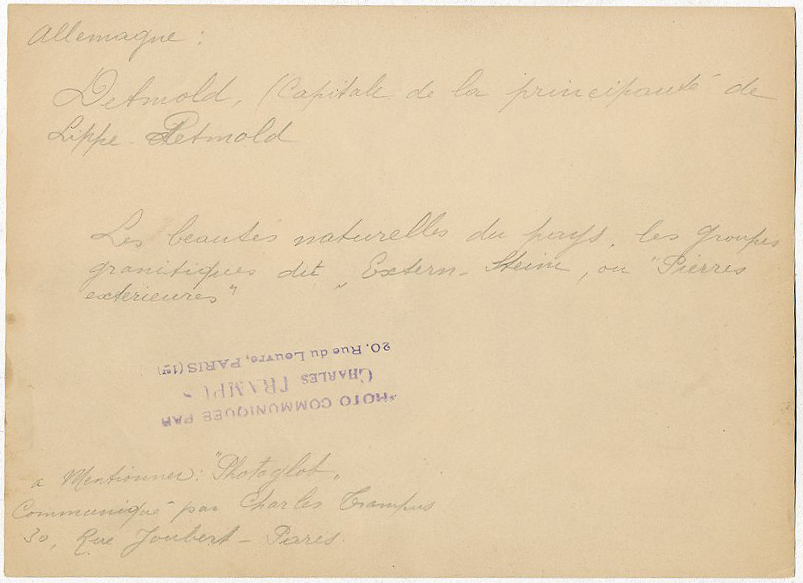 Allemagne :
Detmold, (Capitale de la principauté de
Lippe-Detmold
Les beautés naturelles du pays, les groupes
granitiques dit „Extern-Steine, ou "Pierres
extérieures"
PHOTO COMMUNIQUEE PAR
CHARLES TRAMPUS
20, Rue du Louvre, PARIS (1er)
a Mentionner : "Photoglob„
Communiqué par Charles Trampus
30, Rue Joubert - Paris.